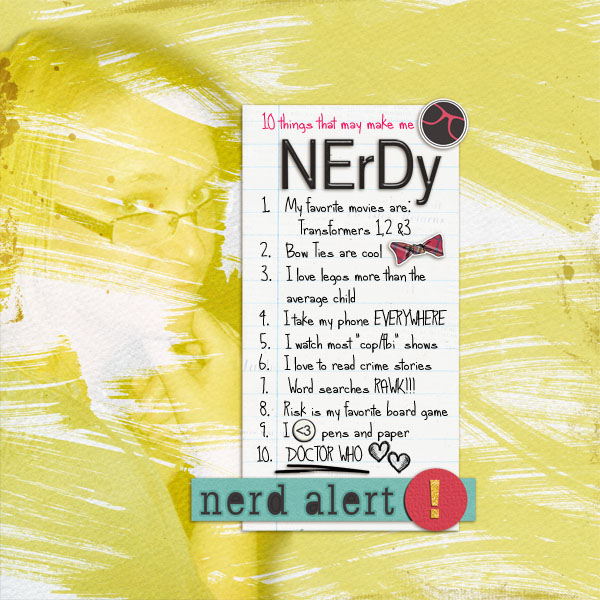 10 things that may make me
NErDy
1. My favorite movies are:
Transformers 1,2 &3
2. Bow Ties are cool
3. I love legos more than the
average child
4. I take my phone EVERYWHERE
5. I watch most "cop/fbi" shows
6. I love to read crime stories
7. Word searches RAWK!!!
8. Risk is my favorite board game
9. I <3 pens and paper
10. DOCTOR WHO
nerd alert !